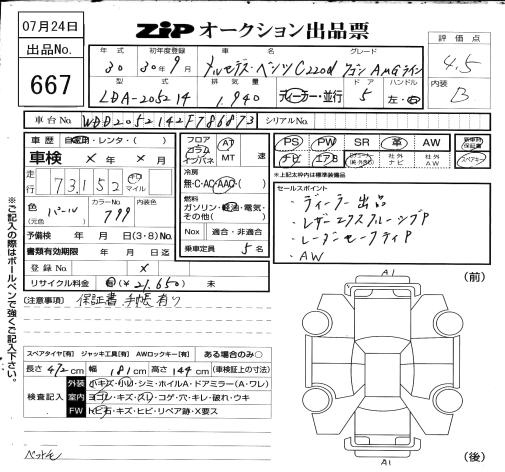 07月24日
ZIP オークション出品票
出品No.
667
年式 初年度登録 車名 グレード
30 30年9月 メルセデス・ベンツC220d ワゴン AMGライン
型式 排気量 ドア ハンドル
LDA-205214 1,940 ディーラー・並行 5 左・右
評価点
4.5
内装
B
車台No. WDD2052142F786873 シリアルNo.
車歴 自家用・レンタ・( )
車検 × 年 × 月
走行 73,152 キロ マイル
色 (元色) パール カラーNo. 799 内装色
予備検 年 月 日(3・8)No.
書類有効期限 年 月 日迄
登録No. ×
リサイクル料金 有(¥21,650) 未
フロア コラム インパネ AT MT 速
冷房 無・C・AC・AAC・( )
燃料 ガソリン・軽油・電気・その他( )
Nox 適合・非適合
乗車定員 5名
PS PW SR 革 AW 新車時保証書
ナビ エアB 社外ナビ 社外AW スペアキー
※上記太枠内は標準装備品
セールスポイント
・ディーラー出品
・レザーエクスクルーシブP
・レーダーセーフティP
・AW
(注意事項) 保証書、手帳有り
※ご記入の際はボールペンで強くご記入下さい。
スペアタイヤ[有] ジャッキ工具[有] AWロックキー[有] ある場合のみ○
長さ472cm 幅181cm 高さ144cm (車検証上の寸法)
検査記入
外装 小キズ・小凹・シミ・ホイルA・ドアミラー(A・ワレ)
室内 ヨゴレ・キズ・スレ・コゲ・穴・キレ・破れ・ウキ
FW トビ石・キズ・ヒビ・リペア跡・X要ス
ペット毛
A1
(前)
A1
(後)